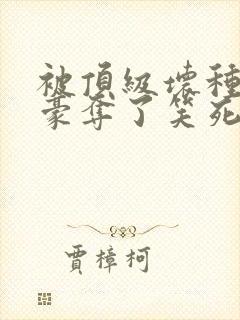 被頂級壞種強取
豪奪了笑死
賈樟柯